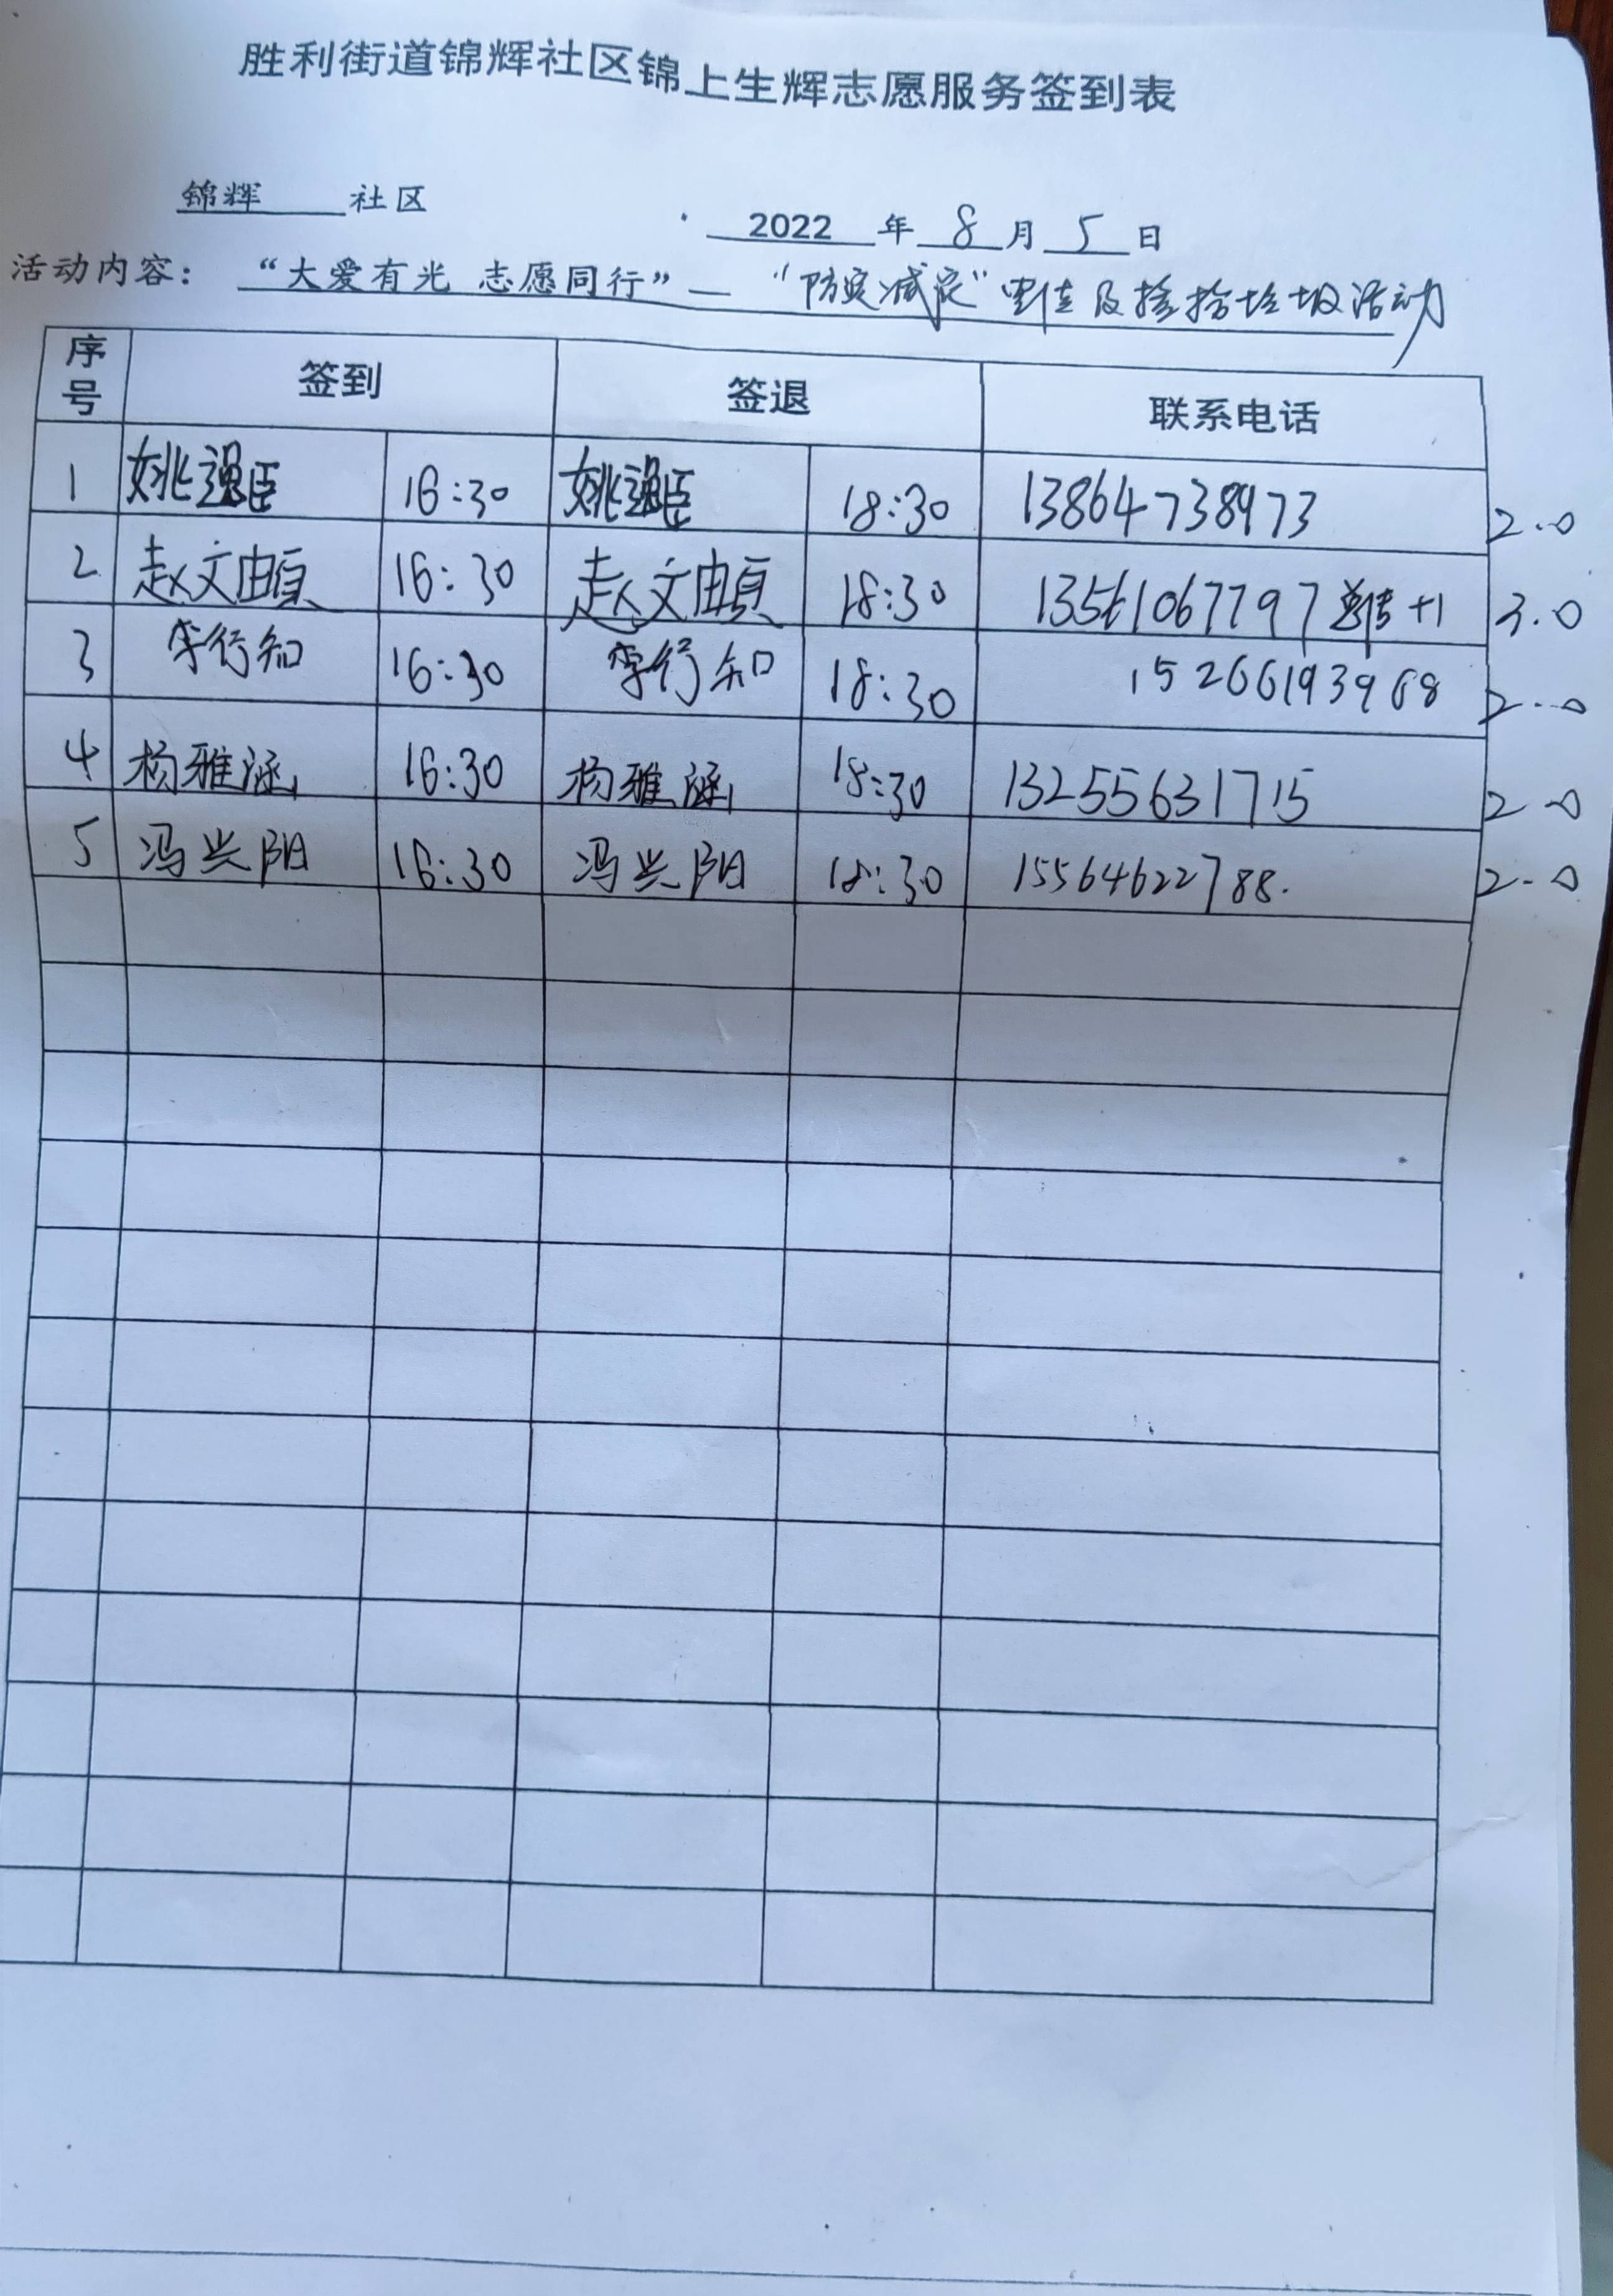 胜利街道锦辉社区锦上生辉志愿服务签到表
锦辉 社区
2022 年 8 月 5 日
活动内容: “大爱有光 志愿同行”— “防灾减灾”宣传及捡拾垃圾活动
序号 签到 签退 联系电话
1 姚强臣 16:30 姚强臣 18:30 13864738973 2.0
2 赵文 16:30 赵文 18:30 13561067797 宣传+1 3.0
3 李行知 16:30 李行知 18:30 15266193968 2.0
4 杨雅涵 16:30 杨雅涵 18:30 13255631715 2.0
5 冯兴阳 16:30 冯兴阳 18:30 15564622788. 2.0